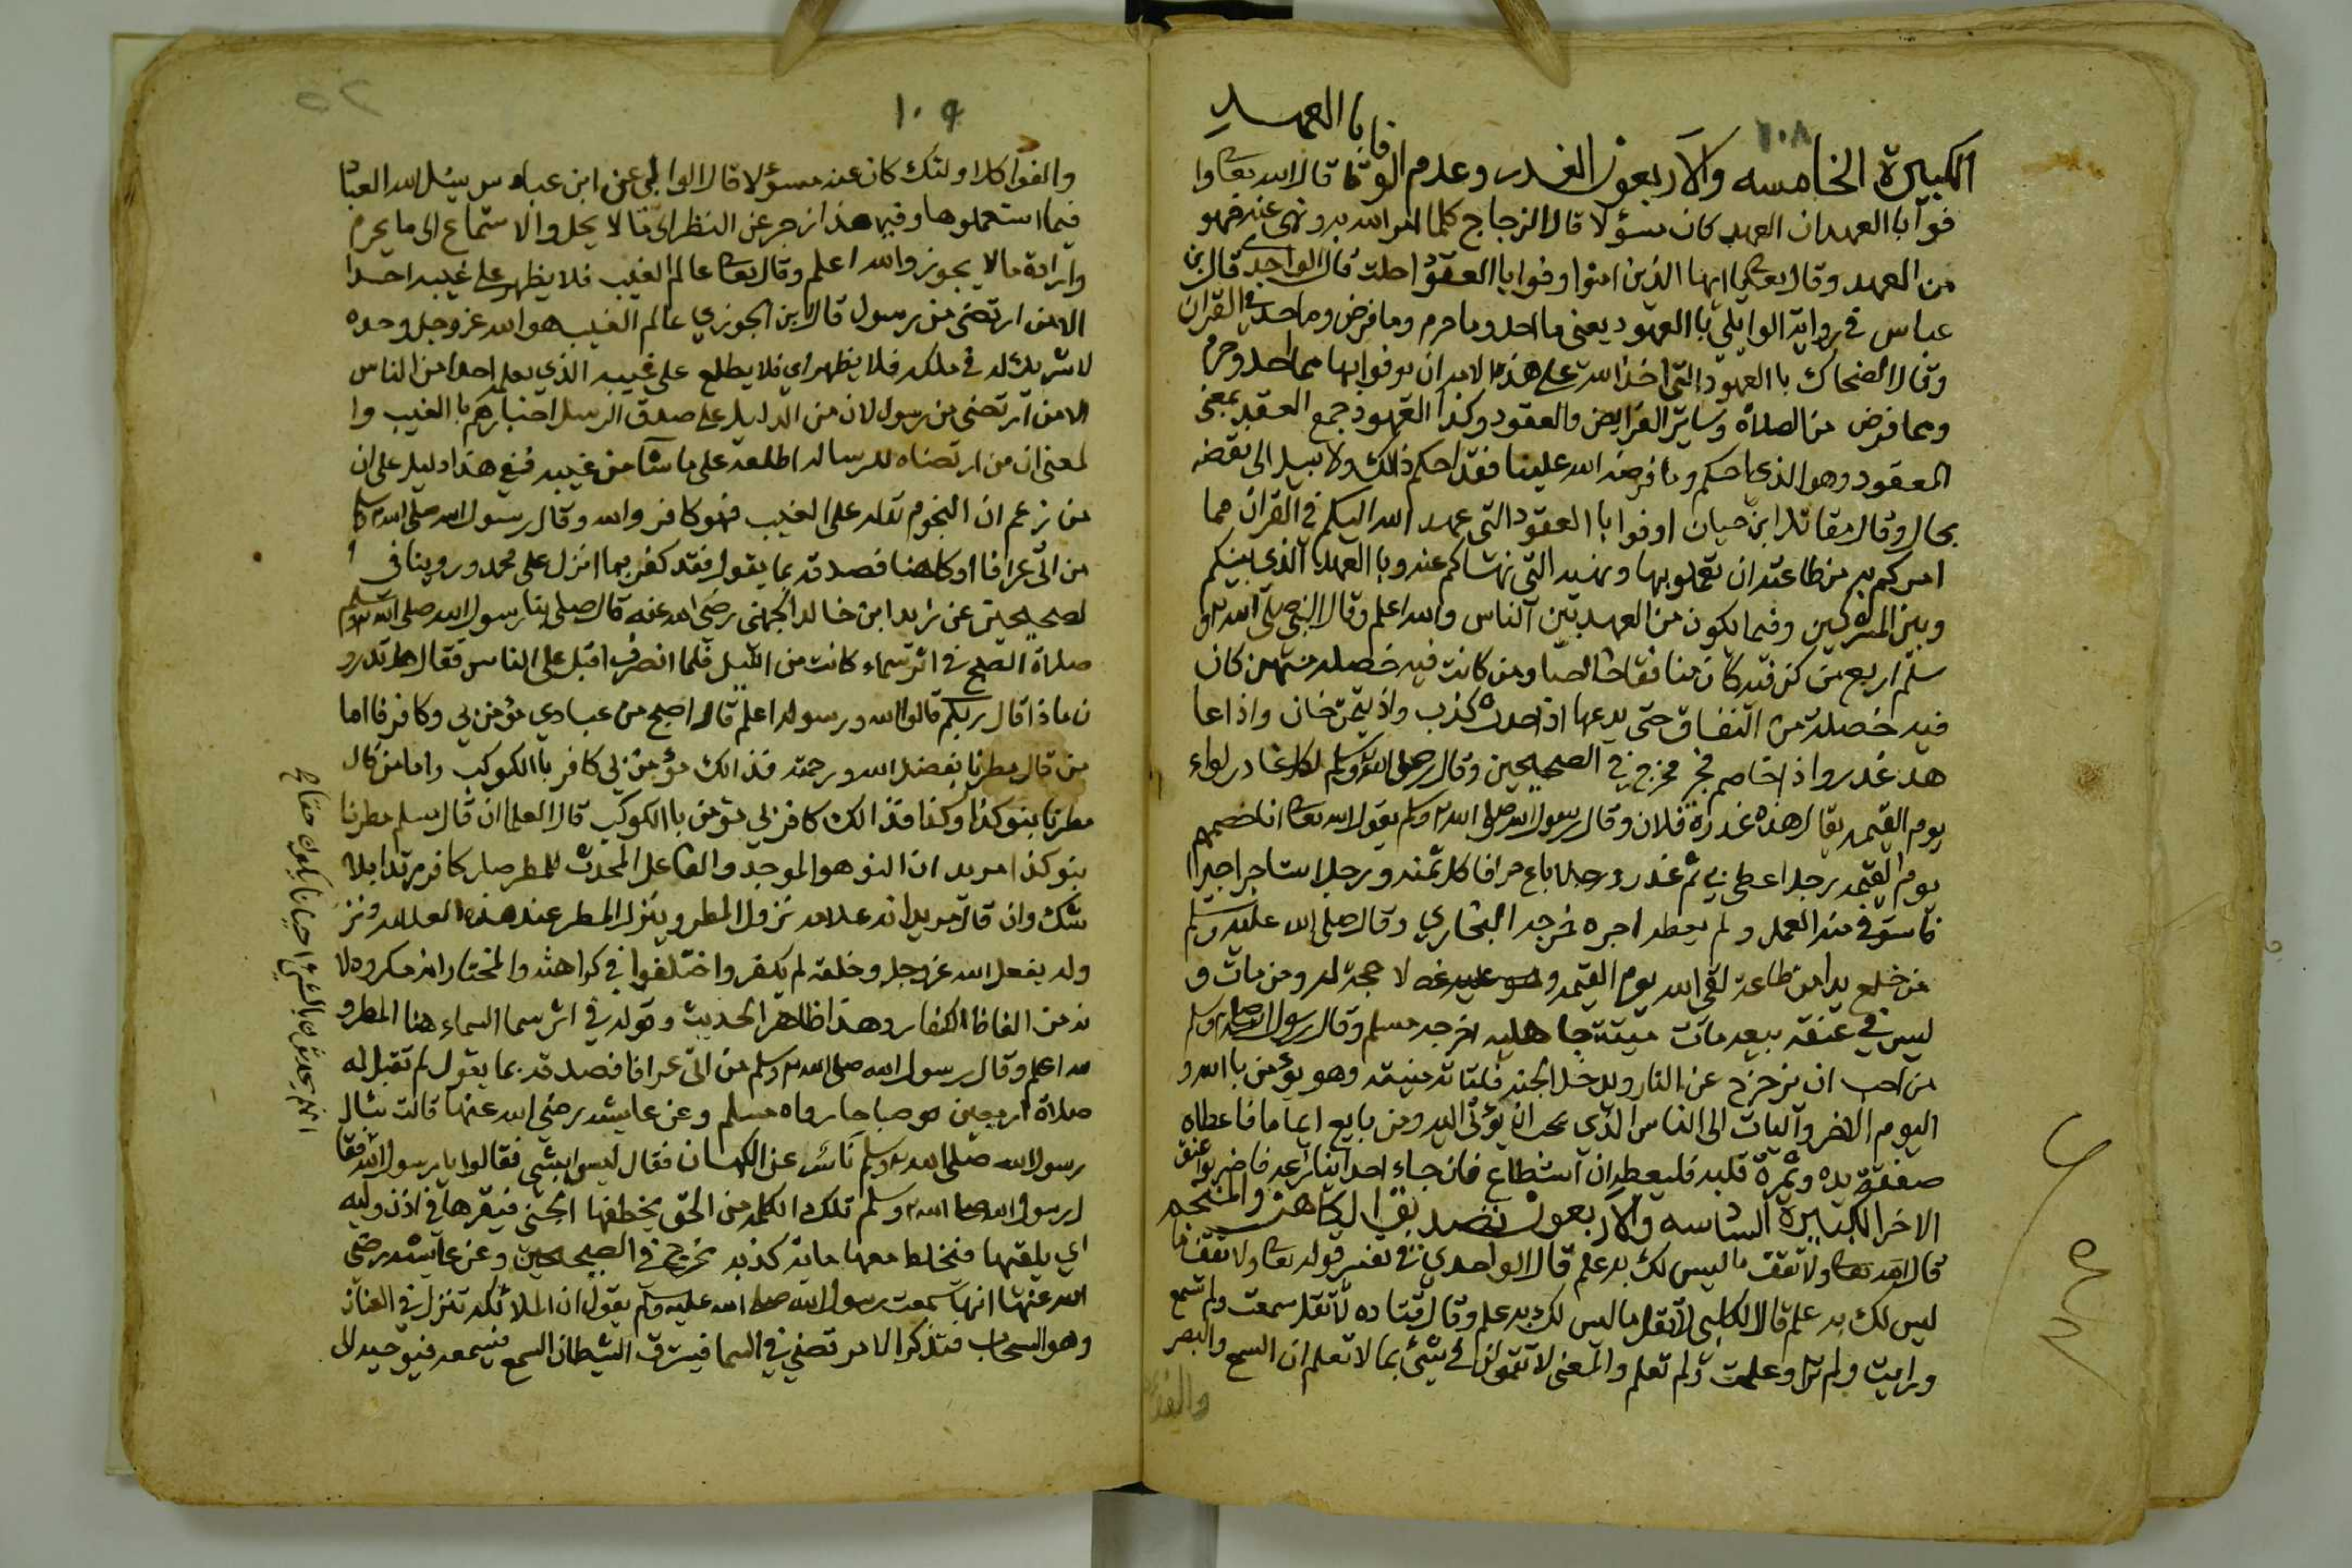 ١٠٨
الكبيرة الخامسه والاربعون الغدر وعدم الوفا با العهد قال الله تعا وا
فوا با العهد ان العهد كان مسؤلا قال الزجاج كلما امر الله به ونهى عنه فهو
من العهد وقال تعا يا ايها الذين امنوا اوفوا با العقود احلت قال الواحدي قال ابن
عباس في رواية الوابلي با العهود يعنى ما احل وما حرم وما فرض وما حد في القران
وقال الضحاك با العهود التي اخذ الله على هذه الامه ان يوفوا بها مما احل وحرم
ومما فرض من الصلاة وساير الفرايض والعقود وكذا العهود جمع العقد بمعنى
المعقود وهو الذي احكم وما فرضه الله علينا فقد احكم ذالك ولا سبيل الى نقضه
بحال وقال مقاتل ابن حيان اوفوا با العقود التي عهد الله اليكم في القران مما
امركم به من طاعته ان تعملوا بها ونهيه التي نهاكم عنه وبا العهد الذي بينكم
وبين المشركين وفيما يكون من العهد بين الناس والله اعلم وقال النبي صلى الله عليه و
سلم اربع من كن فيه كان منافقا خالصا ومن كانت فيه خصله منهن كان
فيه خصلة من النفاق حتى يدعها اذا حدث كذب واذا يتمن خان واذا عا
هد غدر واذا خاصم فجر مخرج في الصحيحين وقال صلى الله عليه وسلم لكل غادر لواء
يوم القيمه يقال هذه غدرة فلان وقال رسول الله صلى الله عليه وسلم يقول الله تعا انا خصمهم
يوم القيمه رجل اعطى بي ثم غدر ورجل باع حرا فاكل ثمنه ورجل استاجر اجيرا
فاستوفى منه العمل ولم يعطه اجره خرجه البخاري وقال صلى الله عليه وسلم
من خلع يدا من طاعة لقي الله يوم القيمه ولا حجة له ومن مات و
ليس في عنقه بيعه مات ميتة جاهليه اخرجه مسلم وقال رسول الله صلى الله عليه وسلم
من احب ان يزحزح عن النار ويدخل الجنه فلتاته منيته وهو يؤمن با الله و
اليوم الاخر وآليات الى الناس الذي يحب ان يؤتى اليه ومن بايع اماما فاعطاه
صفقة يده وثمرة قلبه فليعطه ان استطاع فان جاء احد ينازعه فاضربوا عنق
الاخر الكبيرة السادسه والاربعون تصديق الكاهن والمنجم
قال الله تعا ولا تقف ما ليس لك به علم قال الواحدي في تفسير قوله تعا ولا تقف ما
ليس لك به علم قال الكلبي لا تقل ما ليس لك به علم وقال قتاده لا تقل سمعت ولم تسمع
ورايت ولم تر وعلمت ولم تعلم والمعنى لا تقولن في شئ بما لا تعلم ان السمع والبصر
والفؤاد
١٠٩
٥٢
والفواد كل اولئك كان عنه مسؤلا قال الوابلي عن ابن عباس يسئل الله العباد
فيما استعملوها وفي هذا زجر عن النظر الى ما لا يحل والاستماع الى ما يحرم
وارادة ما لا يجوز والله اعلم وقال تعا عالم الغيب فلا يظهر على غيبه احدا
الا من ارتضى من رسول قال ابن الجوزي عالم الغيب هو الله عز وجل وحده
لا شريك له في ملكه فلا يظهر اي فلا يطلع على غيبه الذي يعلمه احدا من الناس
الا من ارتضى من رسول لان من الدليل على صدق الرسل اخبارهم با الغيب وا
لمعنى ان من ارتضاه للرساله اطلعه على ما شآ من غيبه ففي هذا دليل على ان
من زعم ان النجوم تدل على الغيب فهو كافر والله وقال رسول الله صلى الله عليه وسلم
من اتى عرافا او كاهنا فصدقه بما يقول فقد كفر بما انزل على محمد وروينا في ا
لصحيحين عن زيد ابن خالد الجهني رضي الله عنه قال صلى بنا رسول الله صلى الله عليه وسلم
صلاة الصبح في اثر سماء كانت من الليل فلما انصرف اقبل على الناس فقال هل تدرو
ن ماذا قال ربكم قالوا الله ورسوله اعلم قال اصبح من عبادي مؤمن بي وكافر فاما
من قال مطرنا بفضل الله ورحمته فذالك مؤمن بي كافر با الكوكب واما من قال
مطرنا بنو كذا وكذا فذالك كافر بي مؤمن با الكوكب قال العلما ان قال مسلم مطرنا
بنو كذا مريدا ان النو هو الموجد والفاعل المحدث للمطر صار كافر مرتدا بلا
شك وان قال مريدا انه علامه نزول المطر وينزل المطر عند هذه العلامه ونز
وله بفعل الله عز وجل وخلقه لم يكفر واختلفوا في كراهته والمختار انه مكروه لا
نه من الفاظ الكفار وهذا ظاهر الحديث وقوله في اثر سما السماء هنا المطر و
الله اعلم وقال رسول الله صلى الله عليه وسلم من اتى عرافا فصدقه بما يقول لم تقبل له
صلاة اربعين صباحا رواه مسلم وعن عايشه رضي الله عنها قالت سال
رسول الله صلى الله عليه وسلم ناس عن الكهان فقال ليسوا بشي فقالوا يا رسول الله فقا
ل رسول الله صلى الله عليه وسلم تلك الكلمه من الحق يخطفها الجني فيقرها في اذن وليه
اي يلقيها فيخلط معها ماية كذبه مخرج في الصحيحين وعن عايشه رضي
الله عنها انها سمعت رسول الله صلى الله عليه وسلم يقول ان الملائكه تنزل في العنان
وهو السحاب فتذكر الامر قضي في السما فيسترق الشيطان السمع فيسمعه فيوحيه الى
انهم يحدثون با الشئ احيانا يكون حقا